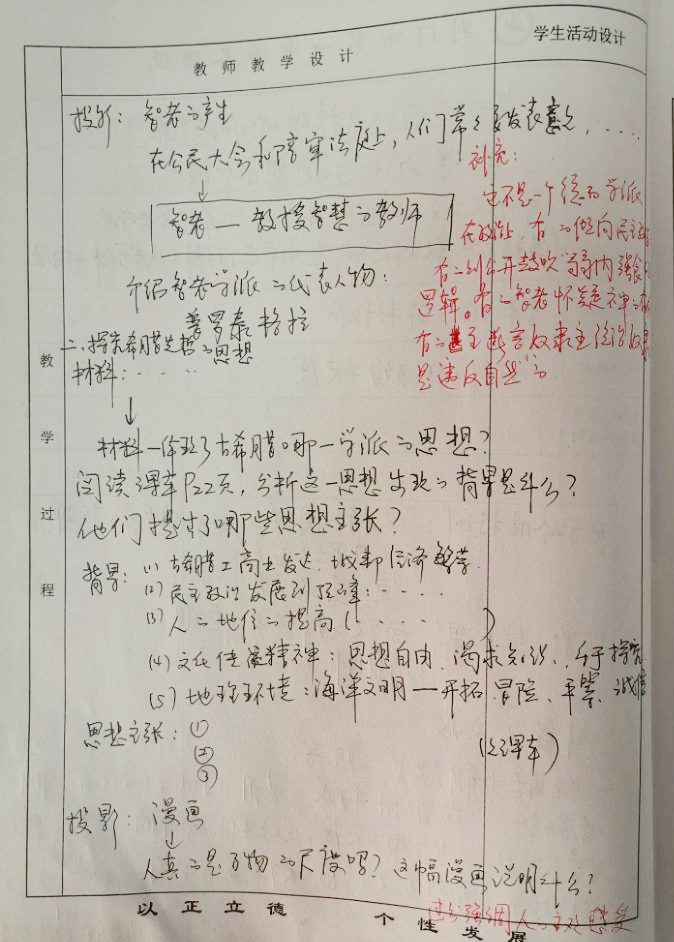 教师教学设计
学生活动设计
投影：智者的产生
在公民大会和陪审法庭上，人们常常要发表意见，……
补充：
它不是一个统一的学派
在政治上，有的倾向民主
智者—教授智慧的教师
有的则公开鼓吹弱肉强食
逻辑。有的智者怀疑神
介绍智者学派的代表人物：
普罗泰格拉
有的甚至断言奴隶主统治奴隶
是违反自然的
二、探究希腊先哲的思想
材料：……
材料一体现了古希腊哪一学派的思想？
阅读课本P22页，分析这一思想出现的背景是什么？
他们提出了哪些思想主张？
背景：(1) 古希腊工商业发达，城邦经济繁荣
(2) 民主政治发展到顶峰：……
(3) 人的地位的提高（……）
(4) 文化传统精神：思想自由、渴求知识、勇于探究
(5) 地理环境：海洋文明—开拓、冒险、平等
思想主张：①
②
(见课本)
③
投影：漫画
人真的是万物的尺度吗？这幅漫画说明什么？
过分强调人的主观感受
教学过程
以正立德 个性发展